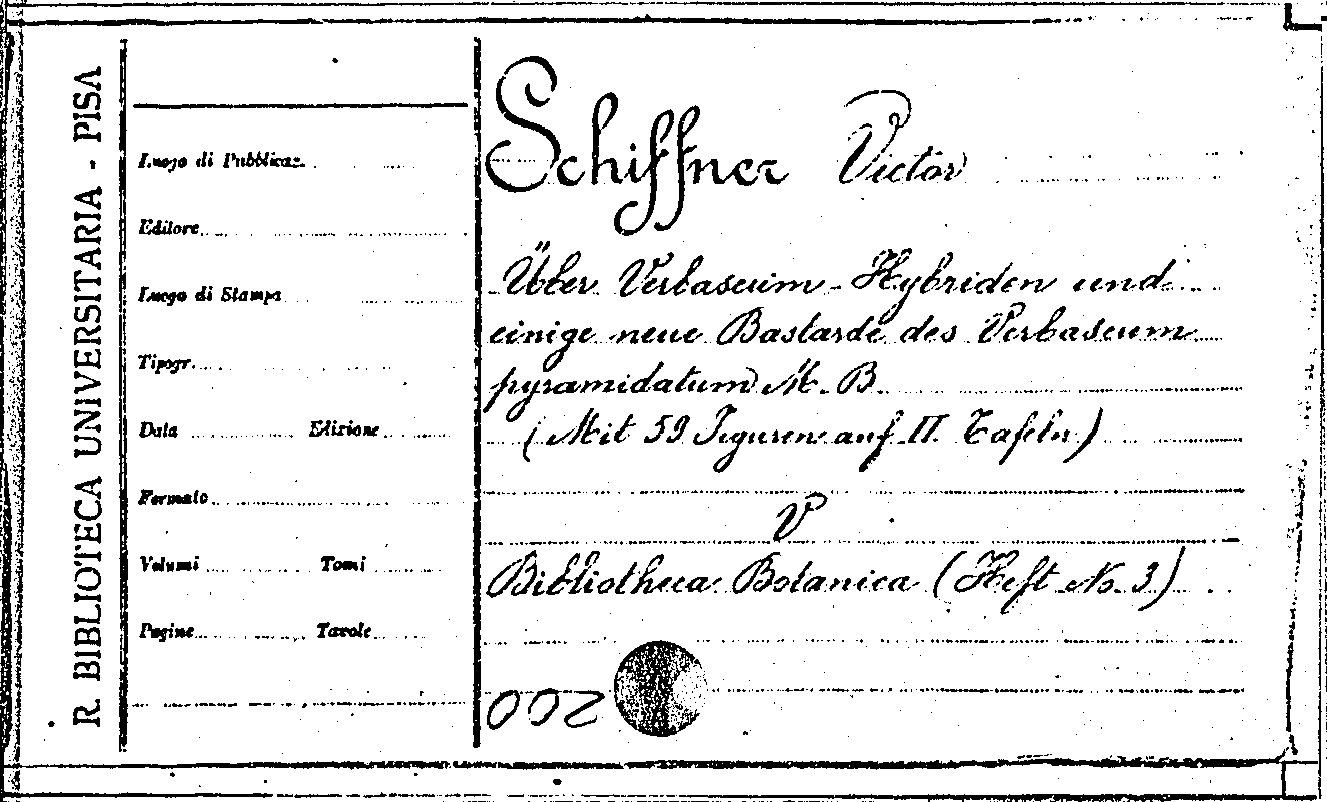 R. BIBLIOTECA UNIVERSITARIA - PISA
Luogo di Pubblicaz.
Editore
Luogo di Stampa
Tipogr.
Data Edizione
Formato
Volumi Tomi
Pagine Tavole
Schiffner Victor
Über Verbascum-Hybriden und
einige neue Bastarde des Verbascum
pyramidatum M. B.
(Mit 59 Figuren auf II. Tafeln)
V
Bibliotheca Botanica (Heft No. 3)
002